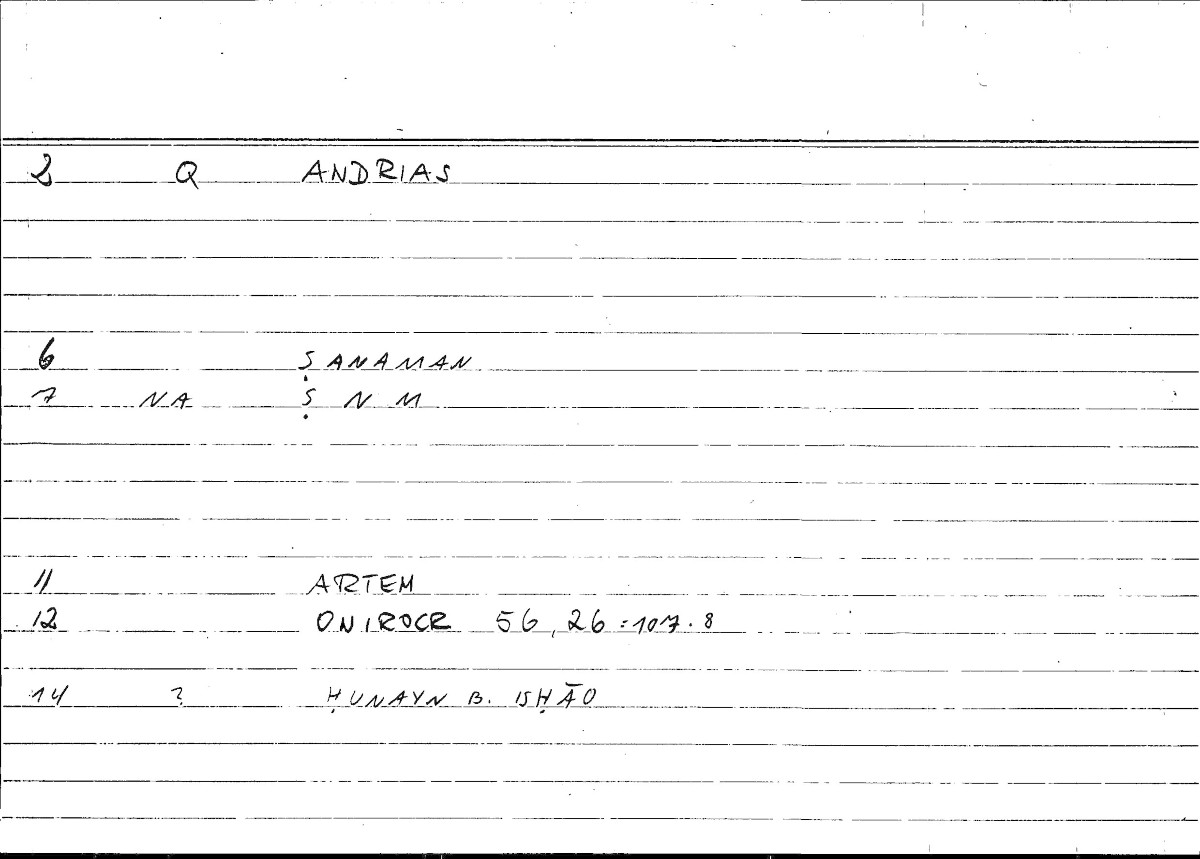 2 Q ANDRIAS
6 ṢANAMAN
7 NA Ṣ N M
11 ARTEM
12 ONIROCR 56,26=107.8
14 ? ḤUNAYN B. ISḤĀQ